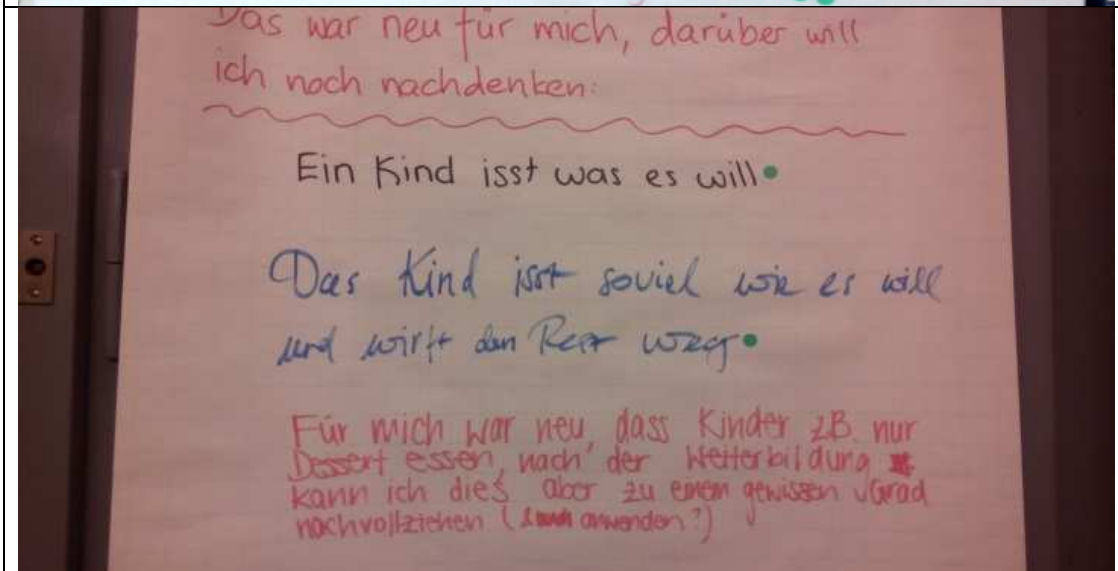 Das war neu für mich, darüber will
ich noch nachdenken:
Ein Kind isst was es will
Das Kind isst soviel wie es will
und wirft den Rest weg
Für mich war neu, dass Kinder z.B. nur
Dessert essen, nach der Weiterbildung
kann ich dies aber zu einem gewissen Grad
nachvollziehen ( anwenden?)